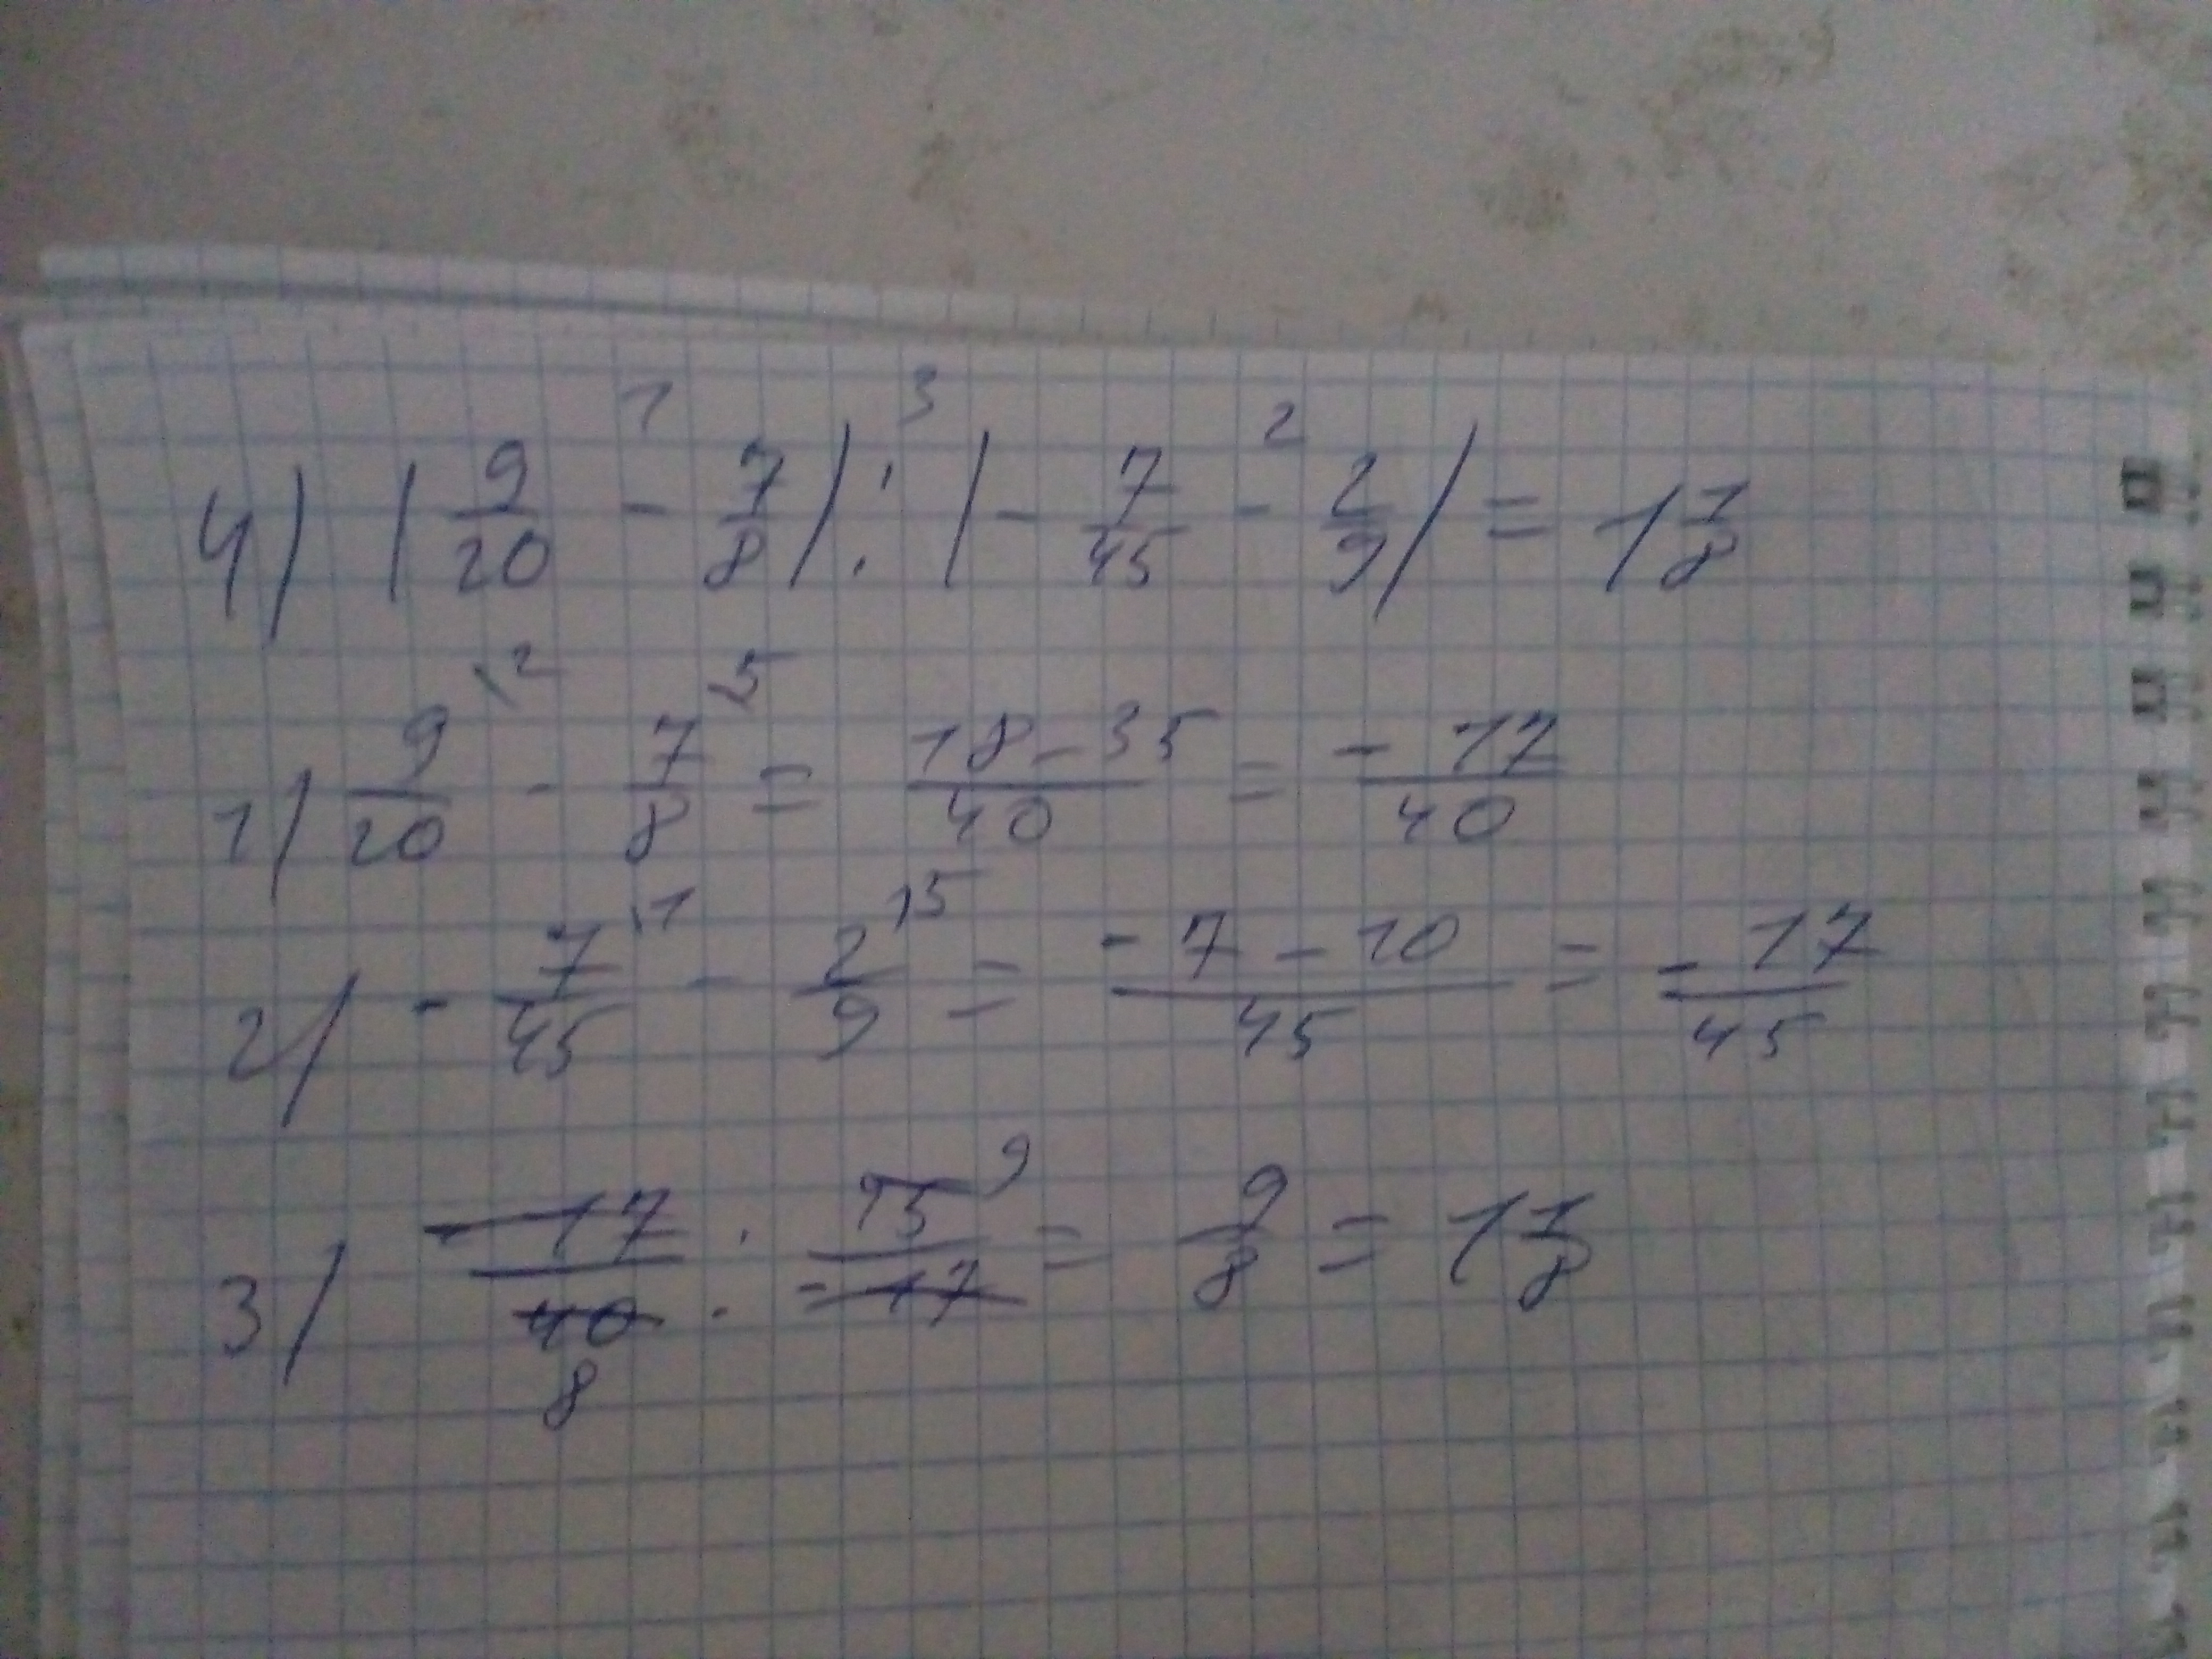 4) (9/20 - 7/8) : (- 7/45 - 2/9) = 1 1/8
1) 9/20 \2 - 7/8 \5 = 18-35/40 = -17/40
2) - 7/45 \1 - 2/9 \5 = -7-10/45 = -17/45
3) -17/40 8 · 45/-17 9 = 9/8 = 1 1/8